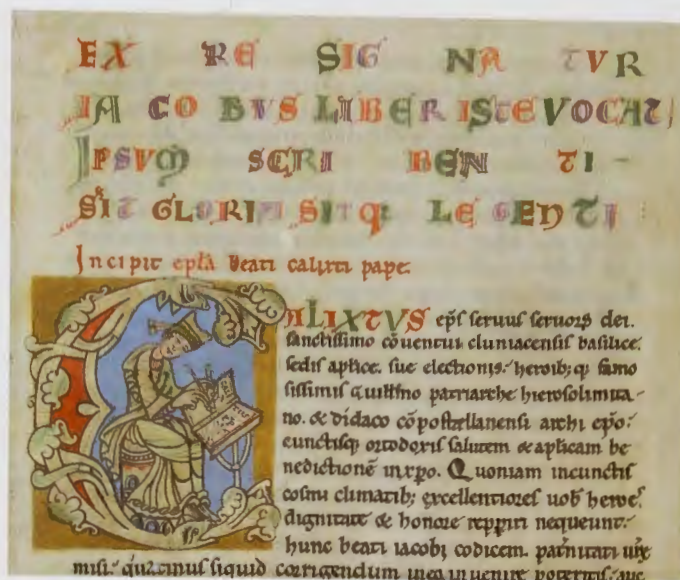 EX RE SIGNATUR
IACOBUS LIBER ISTE VOCAT
IPSVM SCRIBENTI-
SIT GLORIA SITQ: LEGENTI:
Incipit epła beati calixti pape.
CALIXTVS ep̄s seruus seruoꝝ dei.
sanctissimo cōuentui cluniacensis basilice.
sedis aplice. sue electionis. heroib; q; famo
sissimis Guillmo patriarche hierosolimita-
no. & didaco cōpostellanensi archi ep̄o.
cunctisq; ortodoxis salutem & aplicam be
nedictionē in xp̄o. Quoniam in cunctis
cosmi climatib; excellentiores uob heroes
dignitate & honore reppiri nequeunt.
hunc beati iacobi codicem. pat̄nitati ur̄e
misi. quatinus siquid corrigendum in eo inuenire poteritis.